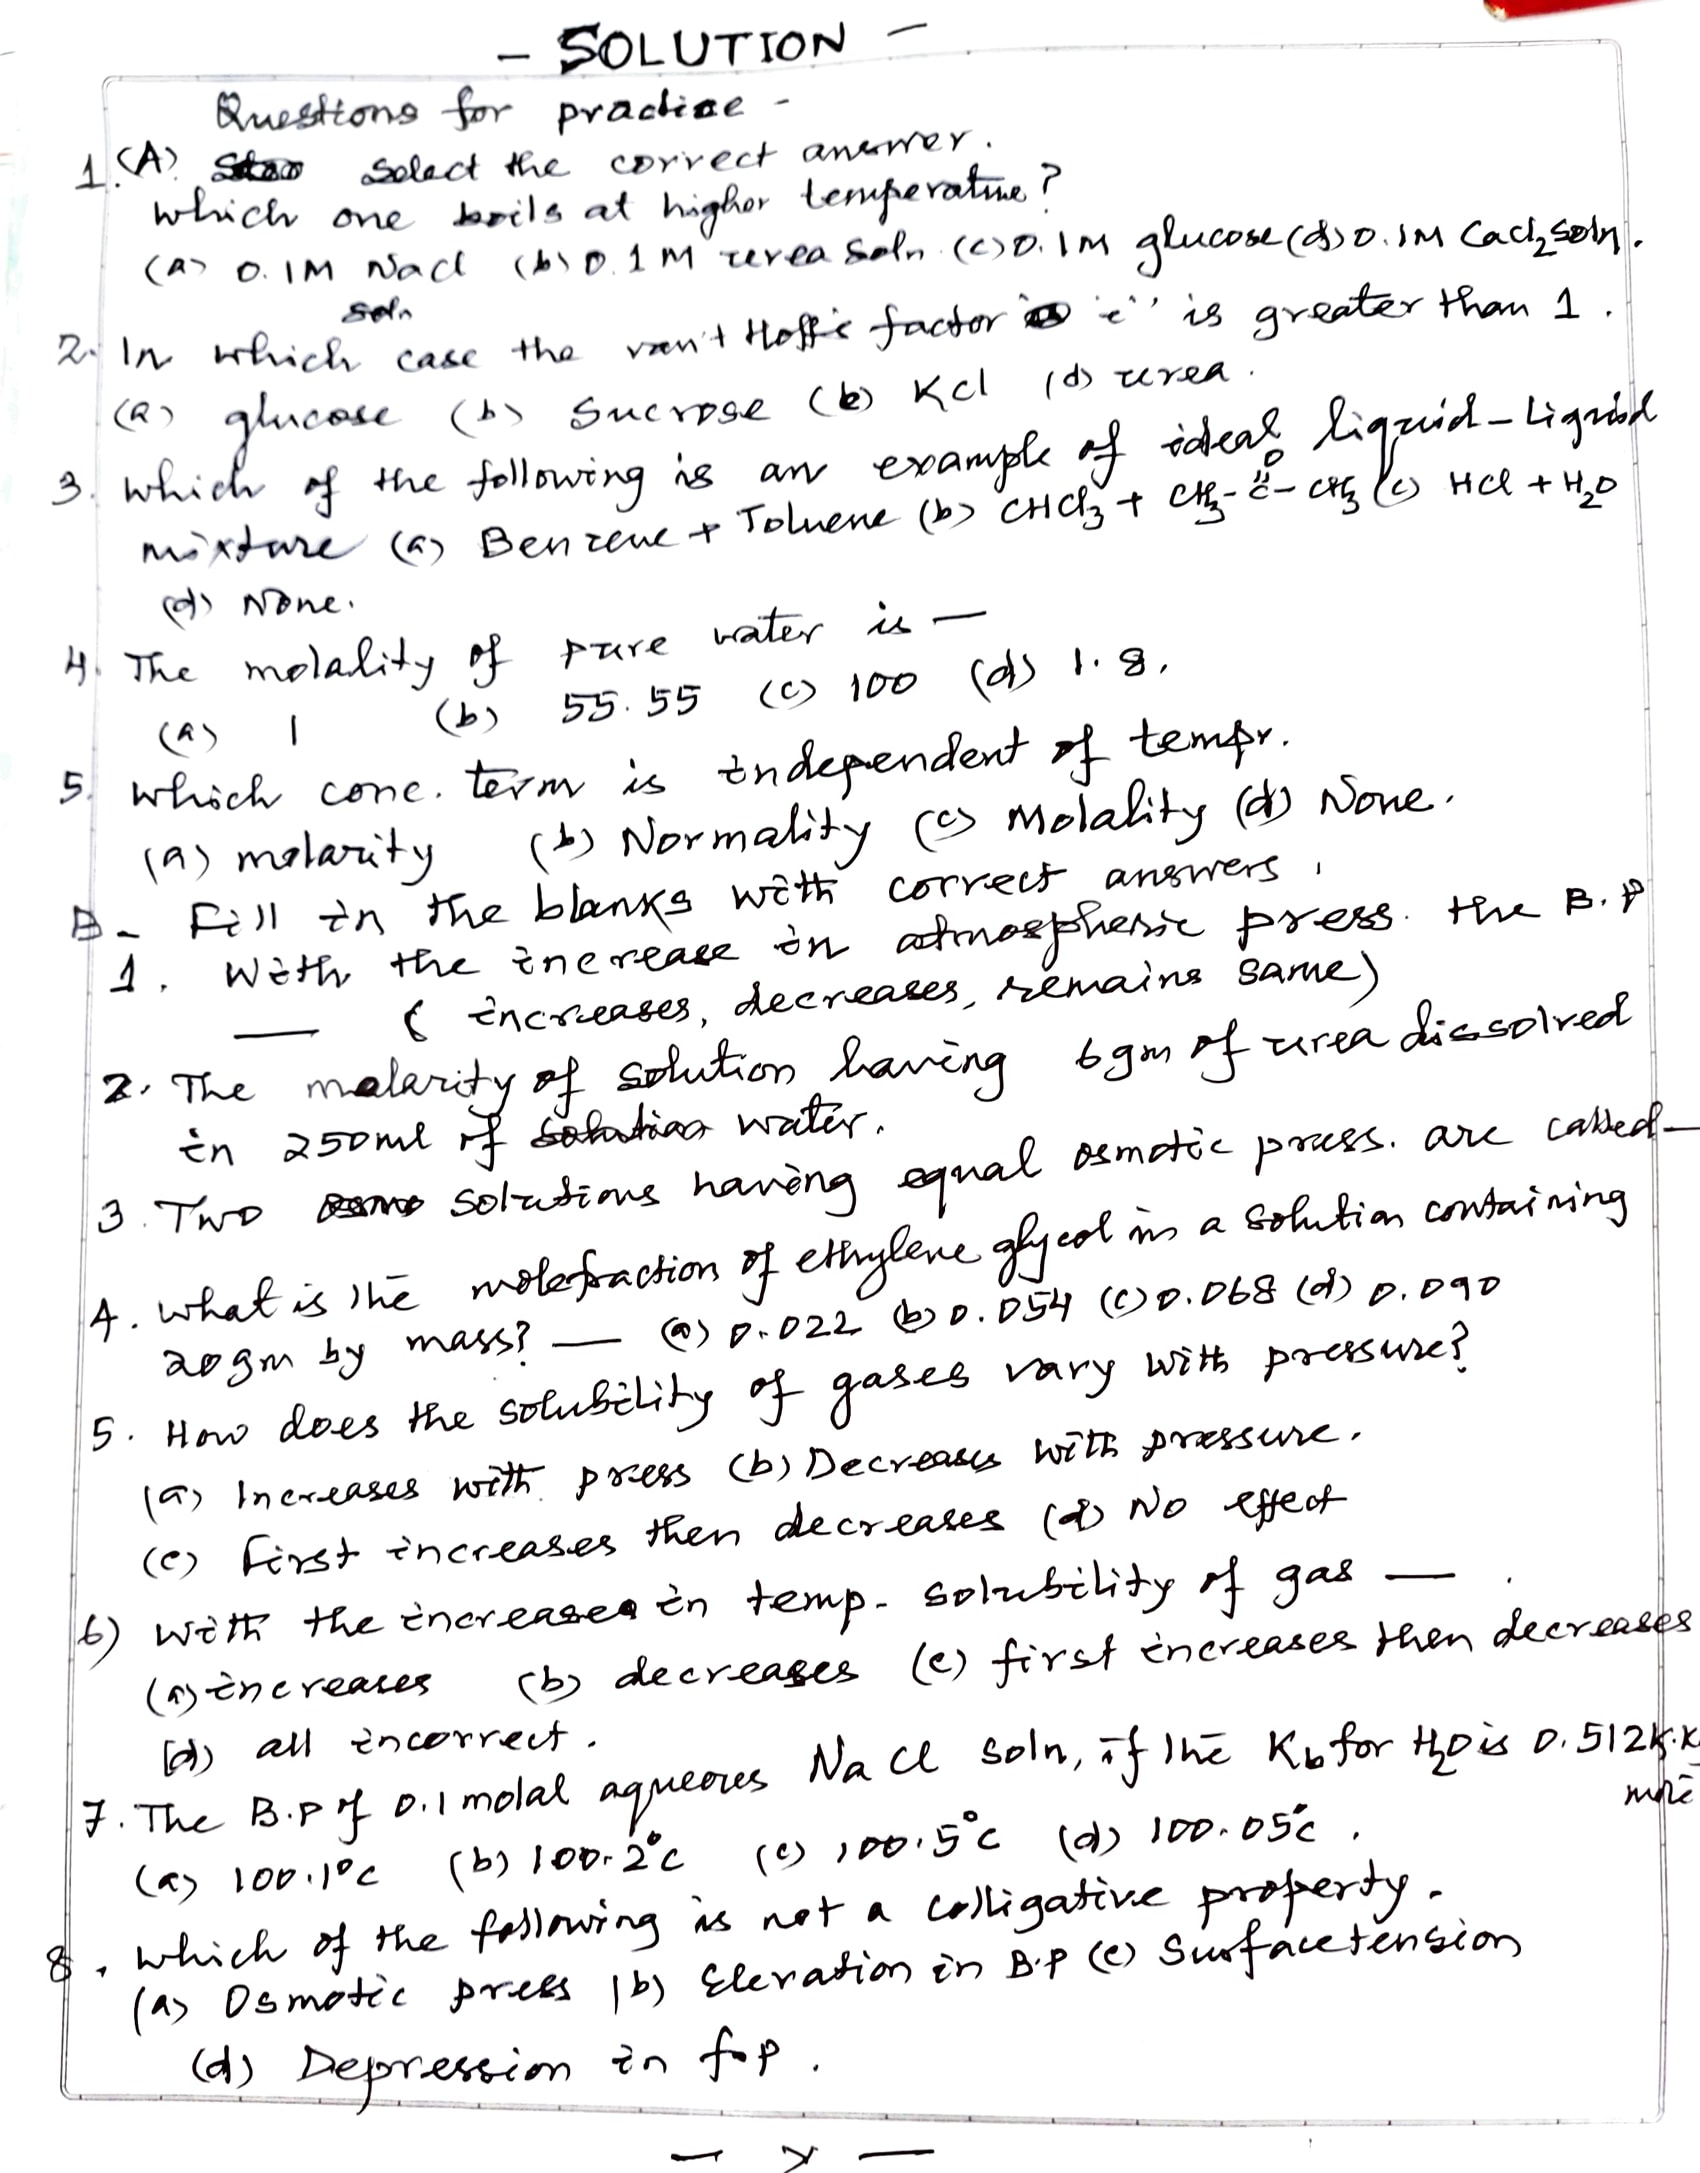 - SOLUTION -
Questions for practice -
1.(A) Select the correct answer.
which one boils at higher temperature?
(a) 0.1M NaCl (b) 0.1M urea soln (c) 0.1M glucose (d) 0.1M CaCl2 soln.
soln
2. In which case the van't Hoff's factor "i" is greater than 1.
(a) glucose (b) Sucrose (c) KCl (d) urea.
3. which of the following is an example of ideal liquid-Liquid
mixture (a) Benzene + Toluene (b) CHCl3 + CH3-C-CH3 (c) HCl + H2O
O
(d) None.
4. The molality of pure water is —
(a) 1 (b) 55.55 (c) 100 (d) 1.8.
5. which conc. term is independent of tempr.
(a) molarity (b) Normality (c) Molality (d) None.
B- Fill in the blanks with correct answers.
1. With the increase in atmospheric press. the B.P
— ( increases, decreases, remains same)
2. The molarity of solution having 6gm of urea dissolved
in 250ml of water.
3. Two solutions having equal osmotic press. are called —
4. what is the molefraction of ethylene glycol in a solution containing
20gm by mass? — (a) 0.022 (b) 0.054 (c) 0.068 (d) 0.090
5. How does the solubility of gases vary with pressure?
(a) Increases with press (b) Decreases with pressure.
(c) First increases then decreases (d) No effect
6) With the increases in temp. solubility of gas — .
(a) increases (b) decreases (c) first increases then decreases
(d) all incorrect.
7. The B.P of 0.1 molal aqueous NaCl soln, if the Kb for H2O is 0.512 K.K
mole
(a) 100.1°C (b) 100.2°C (c) 100.5°C (d) 100.05°C.
8. which of the following is not a colligative property.
(a) Osmotic press (b) Elevation in B.P (c) Surface tension
(d) Depression in f.p.
— x —